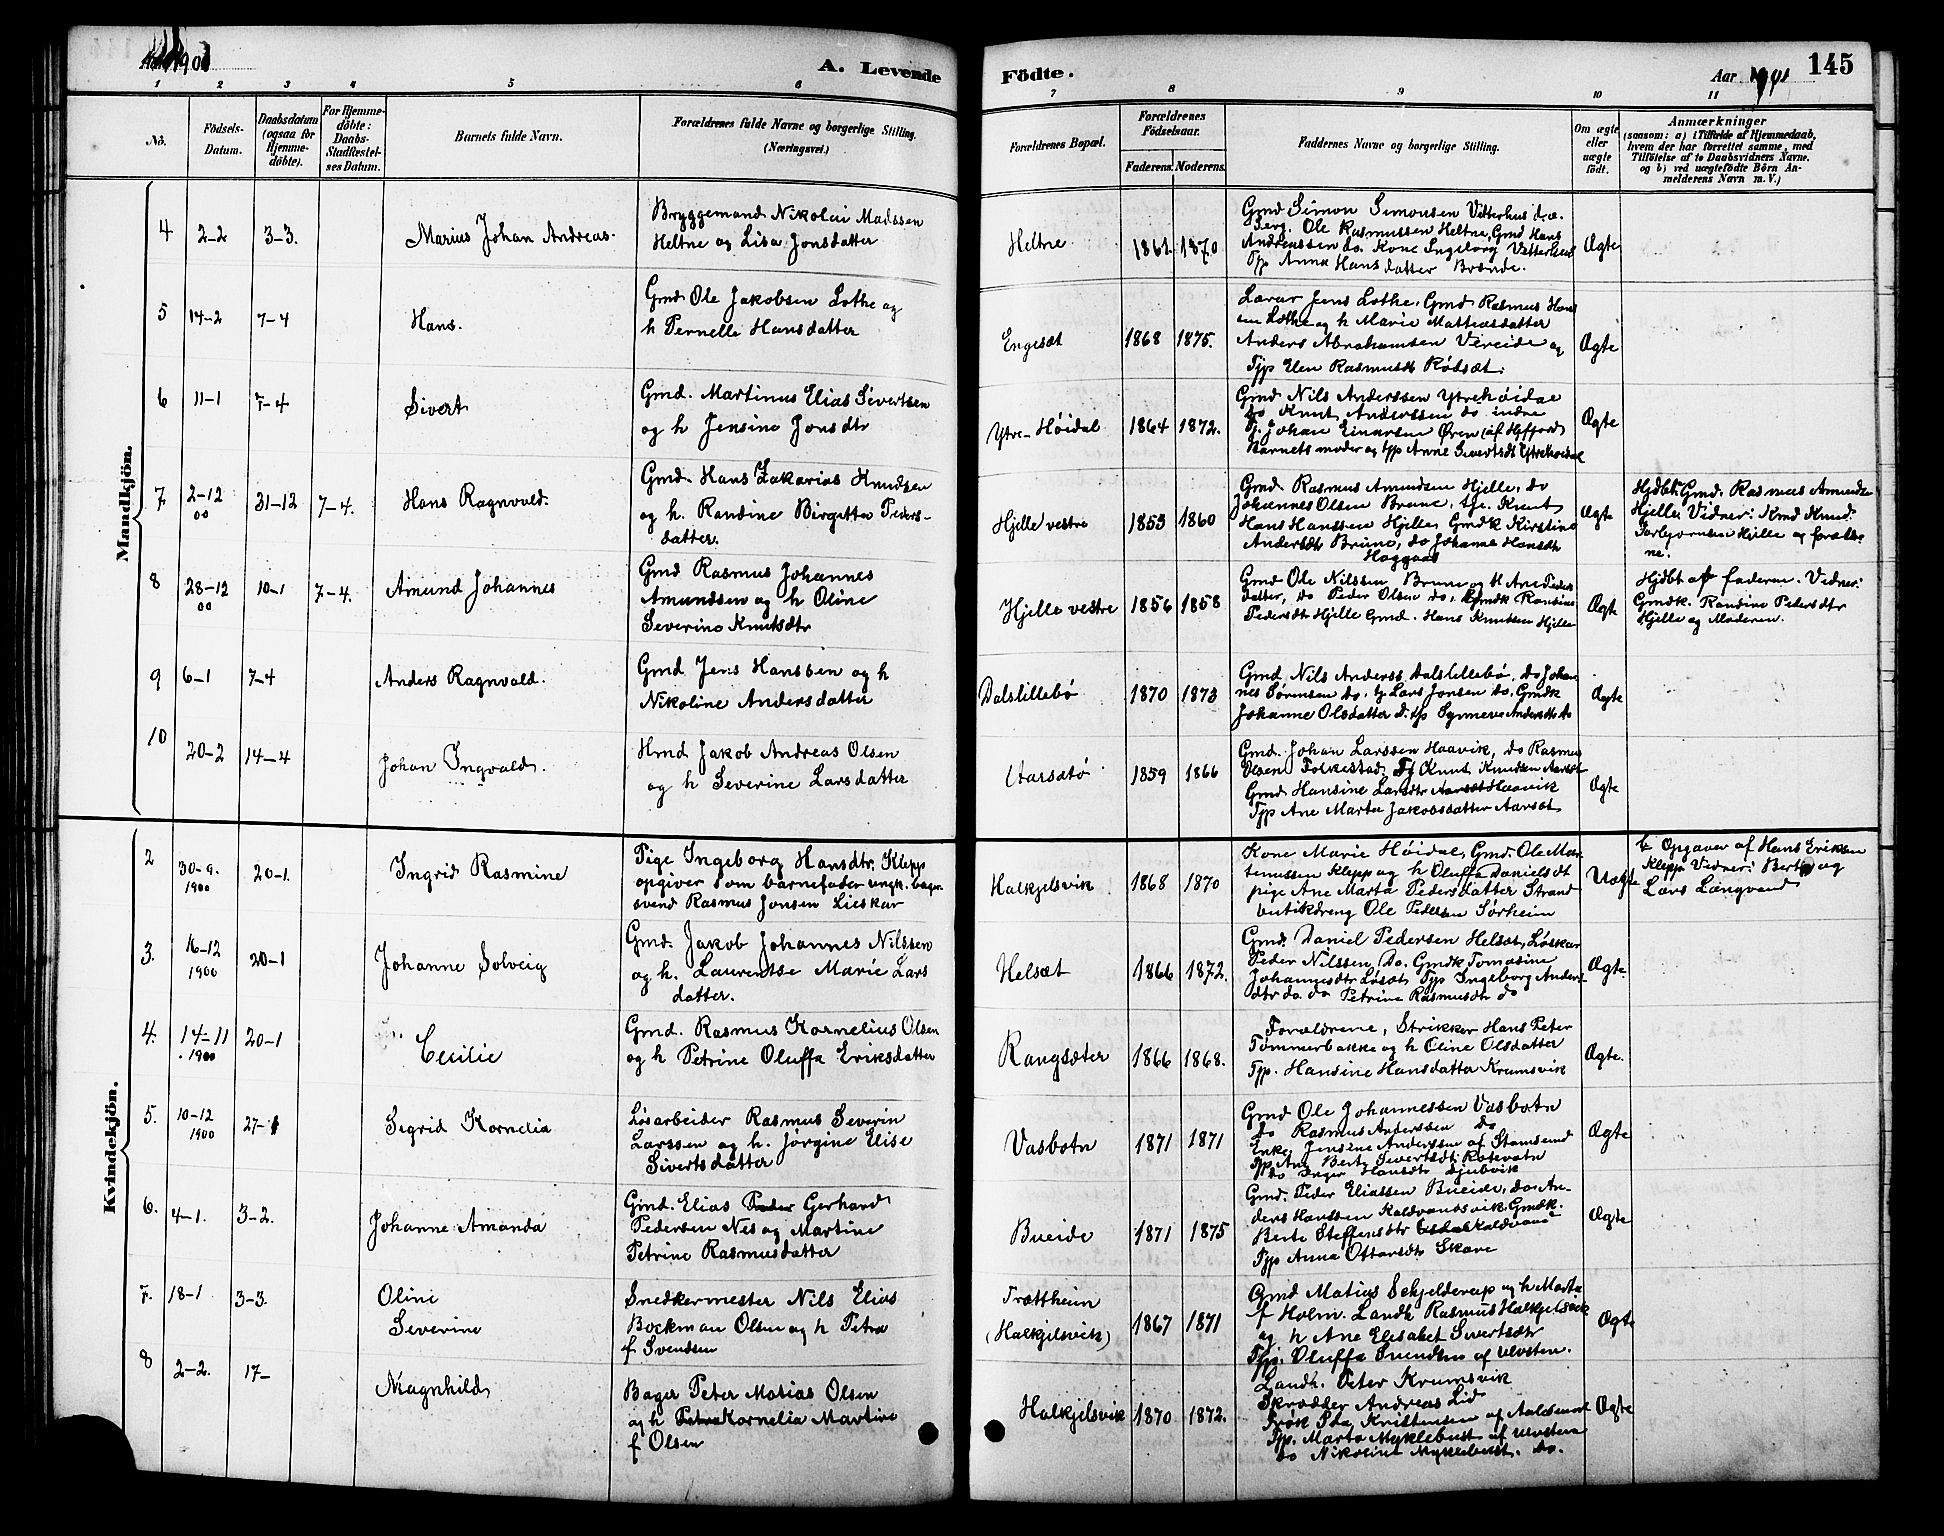 1901
A. Levende
1 2 3 4 5 6
No.
Födsels-
Datum.
Daabsdatum
(ogsaa for
Hjemme-
döbte).
For Hjemme-
döbte:
Daabs-
Stadfæstel-
ses Datum.
Barnets fulde Navn.
Forældrenes fulde Navne og borgerlige Stilling.
(Næringsvei.)
Mandkjön.
4 2-2 3-3. Marius Johan Andreas.
Bryggemand Nikolai Madssen
Heltne og Lisa Jonsdatter
5 14-2 7-4 Hans.
Gmd Ole Jakobsen Lothe og
h Pernelle Hansdatter
6 11-1 7-4 Sivert
Gmd. Martinus Elias Sivertsen
og h Jensine Jonsdtr
7. 2-12 00 31-12 7-4. Hans Ragnvald.
Gmd. Hans Zakarias Knudsen
og h. Randine Birgitta Peders-
datter.
8 28-12 00 10-1 7-4. Amund Johannes
Gmd Rasmus Johannes
Amundsen og h Oline
Severine Knutsdtr
9 6-1 7-4 Anders Ragnvald.
Gmd Jens Hanssen og h
Nikoline Andersdatter
10 20-2 14-4 Johan Ingvald.
Hmd Jakob Andreas Olsen
og h Severine Larsdatter
Kvindekjön.
2 30-9. 1900 20-1. Ingrid Rasmine
Pige Ingeborg Hansdtr, Klepp
opgiver som barnefader ungk. bager
svend Rasmus Jonsen Lieskar
3. 16-12 1900 20-1 Johanne Solveig
Gmd. Jakob Johannes Nilssen
og h. Laurentse Marie Lars
datter.
4. 14-11 1900 20-1 Cecilie
Gmd. Rasmus Kornelius Olsen
og h Petrine Oluffa Eriksdatter
5. 10-12 1900 27-1 Sigrid Kornelia
Løsarbeider Rasmus Severin
Larssen og h. Jørgine Elise
Sivertsdatter
6. 4-1. 3-2. Johanne Amanda
Gmd. Elias Peder Gerhard
Pedersen Nes og Martine
Petrine Rasmusdatter
7. 18-1 3-3. Oline
Severine
Snedkermester Nils Elias
Bockman Olsen og h Petra
f Svendsen
8 2-2. 17- Magnhild
Bager Peter Matias Olsen
og h Petra Kornelia Martine
f Olsen
Födte.
Aar
145
7 8 9 10 11
Forældrenes Bopæl.
Forældrenes
Födselsaar.
Faderens. Moderens.
Faddernes Navne og borgerlige Stilling.
Om ægte
eller
uægte
födt.
Anmærkninger
(saasom: a) i Tilfælde af Hjemmedaab,
hvem der har forrettet samme, med
Tilföielse af to Daabsvidners Navne.
og b) ved uægtefödte Börn An-
melderens Navn m. V.)
Heltne 1861 1870
Gmd Simon Simonsen Vetterhus d.æ.
Berg. Ole Rasmussen Heltne, Gmd Hans
Andreassen do. Kone Ingeborg Vetterhus
Tjp Anna Hansdatter Brænde.
Ægte
Engesæt 1868 1875.
Lærar Jens Lothe, Gmd Rasmus Hans
sen Lothe og h Marie Mathiasdatter
Anders Abrahamsen Vereide og
Tjp Elen Rasmusdtr Rødsæt.
Ægte
Ytre-Høidal 1864 1872.
Gmd Nils Anderssen Ytrehøidae
do Knut Anderssen do indre
Tj. Johan Einarsen Øren (af Hjfjord)
Barnets moder og tjp Anne Sivertsdt Ytrehøidal
Ægte
Hjelle vestre 1853 1860
Gmd Rasmus Amundsen Hjelle, do
Johannes Olsen Brune, tje. Knut
Hans Hanssen Hjelle, Gmdk Kirstine
Andersdtr Brune, do Johanne Hansdtr
Haggaas
Ægte
Hjdbt. Gmd. Rasmus Amundsen
Hjelle Vidner: Kmd Knud.
Torbjørnsen Hjelle og forældre
ne.
Hjelle vestre 1856 1858
Gmd Ole Nilssen Brune og h Ane Peders
datter, do Peder Olsen do, Gmdk Randine
Pedersdtr Hjelle Gmd. Hans Knutsen Hjelle
Ægte
Hjdbt af faderen. Vidner:
Gmdk. Randine Pedersdtr
Hjelle og Moderen.
Dalslillebø 1870 1873
Gmd Nils Anderss. Dalslillebø, do Johan
nes Sørensen do. tj Lars Jonsen do, Gmdk
Johanne Olsdatter do. tjp Synneve Andersdtr do
Ægte
Aarsætø 1859 1866
Gmd. Johan Larssen Haavik, do Rasmus
Olsen Folkestad, Tj Knut Knudsen Aarsæt
Gmd Hansine Larsdtr Aarsæt Haavik
Tjp Ane Marta Jakobsdatter Aarsæt
Ægte
Halkjelsvik 1868 1870
Kone Marie Høidal, Gmd. Ole Mar
tinussen Klepp og h Oluffa Danielsdt
pige Ane Marta Pedersdatter Strand
butikdreng Ole Pedersen Sørheim
Uægte
b Opgaver af Hans Eriksen
Klepp Vidner: Berte og
Lars Langvand
Helsæt 1866 1872.
Gmd. Daniel Pedersen Helsæt, Løskar
Peder Nilssen, do. Gmdk Tomasine
Johannesdtr Løsæt, Tjp Ingeborg Anders-
dtr do. do Petrine Rasmusdtr do
Ægte.
Rangsæter 1866 1868.
Forældrene, Strikker Hans Peter
Tømmerbakke og h Oline Olsdatter
Tjp. Hansine Hansdatter Krumsvik
Ægte.
Vasbotn 1871 1871
Gmd Ole Johannessen Vasbotn
do Rasmus Anderssen do
Enke Jensine Anderssen af Stamsund
Tjp Ane Berte Sivertsdtr Rotevatn
do Inger Hansdtr Djubvik
Ægte
Bueide 1871 1875
Gmd. Peder Eliassen Bueide, do. An-
ders Hanssen Kaldvandsvik, Gmdk.
Berte Steffensdtr Kaldvand
Tjp Anna Ottarsdtr Skare
Ægte
Trættheim
(Halkjelsvik) 1867 1871
Gmd Matias Schjelderup og h Marta
f Holm. Landh. Rasmus Halkjelsvik
og h Ane Elisabet Sivertsdtr
Tjp. Oluffa Svendsen af Ulvsten.
Ægte
Halkjelsvik 1870 1872.
Landh. Peter Krumsvik
Skrædder Andreas Lid
Frøk Ida Kristensen af Aalesund
Tjp. Marta Myklebust af Ulvsten
do Nikoline Myklebust. do.
Ægte